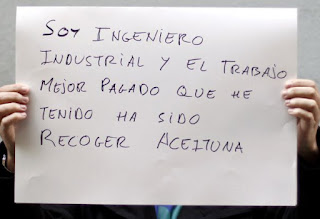 SOY INGENIERO
INDUSTRIAL Y EL TRABAJO
MEJOR PAGADO QUE HE
TENIDO HA SIDO
RECOGER ACEITUNA